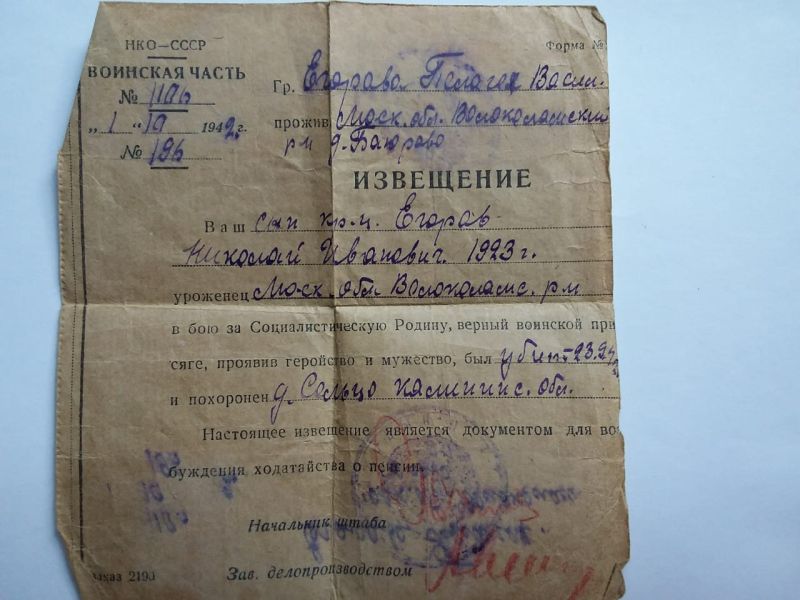 НКО—СССР
Форма №
ВОИНСКАЯ ЧАСТЬ
№ 1196
„1 “ IV 1942 г.
№ 196
Гр. Егорова Пелагея Васил.
прожив. Моск. обл. Волоколамский
р-н д.
ИЗВЕЩЕНИЕ
Ваш сын кр-ц. Егоров
Николай Иванович. 1923 г.
уроженец Моск. обл Волоколамс. р-н
в бою за Социалистическую Родину, верный воинской при
сяге, проявив геройство и мужество, был убит
и похоронен д. Сельцо калининс. обл.
Настоящее извещение является документом для воз
буждения ходатайства о пенсии.
Начальник штаба
Зав. делопроизводством
аказ 2190